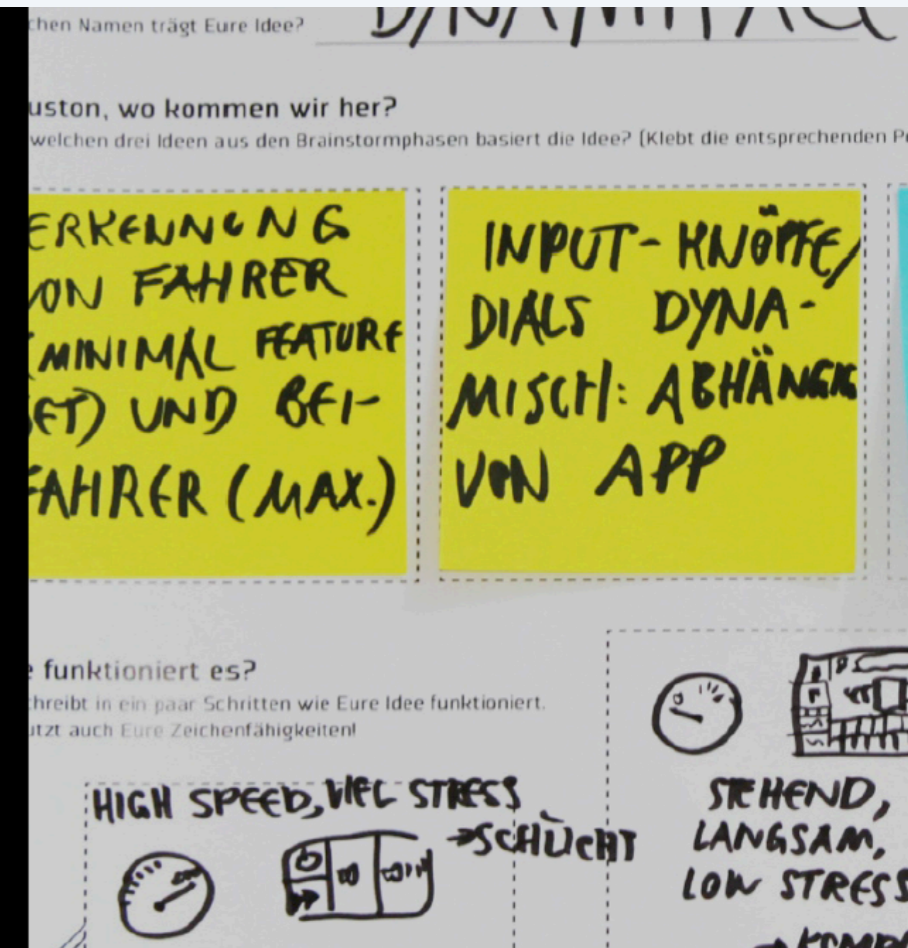 chen Namen trägt Eure Idee?
uston, wo kommen wir her?
welchen drei Ideen aus den Brainstormphasen basiert die Idee? (Klebt die entsprechenden P
ERKENNUNG
VON FAHRER
(MINIMAL FEATURE
SET) UND BEI-
FAHRER (MAX.)
INPUT-KNÖPFE/
DIALS DYNA-
MISCH: ABHÄNGIG
VON APP
e funktioniert es?
chreibt in ein paar Schritten wie Eure Idee funktioniert.
utzt auch Eure Zeichenfähigkeiten!
HIGH SPEED, VIEL STRESS
→SCHLICHT
STEHEND,
LANGSAM,
LOW STRESS